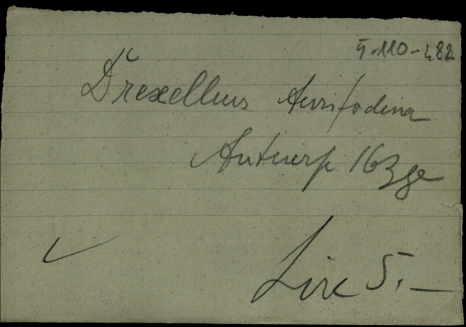 5-110-482
Drexellius Aurifodina
Antwerp 1639
Lire 5.—